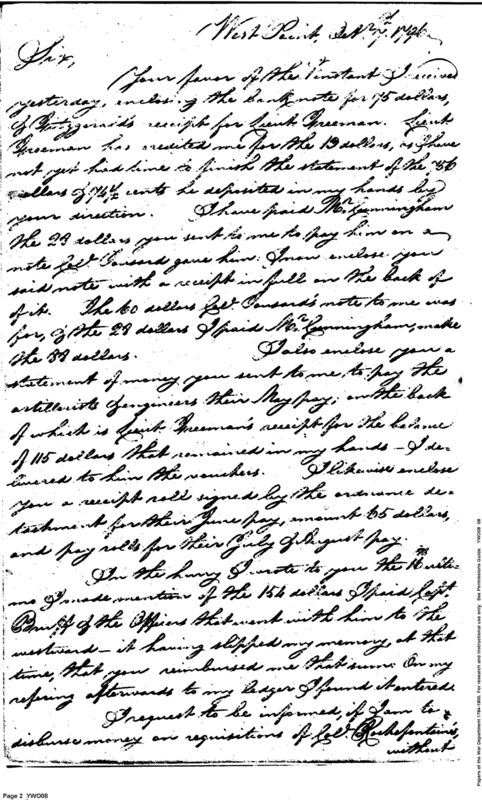 West Point, Oct. 7th 1796
Sir,
Your favor of the 1st instant I received
yesterday, enclosing the bank note for 75 dollars,
& Fitzgerald's receipt for Lieut Freeman. Lieut
Freeman has credited me for the 19 dollars, as I have
not yet had time to finish the statement of the 36
dollars & 76½ cents he deposited in my hands by
your direction. I have paid Mr. Cunningham
the 28 dollars you sent to me to pay him on a
note Colo. gave him: I now enclose you
said note with a receipt in full on the back of
of it. The 60 dollars Colo. note to me was
for, & the 28 dollars I paid Mr. Cunningham, make
the 88 dollars. I also enclose you a
statement of money you sent to me to pay the
artillerists & engineers their May pay, on the back
of which is Lieut Freeman's receipt for the balance
of 115 dollars that remained in my hands – I de-
livered to him the vouchers. I likewise enclose
you a receipt roll signed by the ordnance de-
tachment for their June pay, amount 65 dollars,
and pay rolls for their July & August pay.
In the hurry I wrote to you the ulti-
mo I made mention of the 154 dollars I paid Capt.
Bruff & the Officers that went with him to the
westward – it having slipped my memory at that
time, that you reimbursed me that sum. On my
refering afterwards to my ledger I found it entered.
I request to be informed, if I am to
disburse money on requisitions of Colo. Rochefontaine's,
without
Page 2 YWO08
Papers of the War Department 1784-1800. For research and instructional use only. See Permissions Guide. YWO08 08